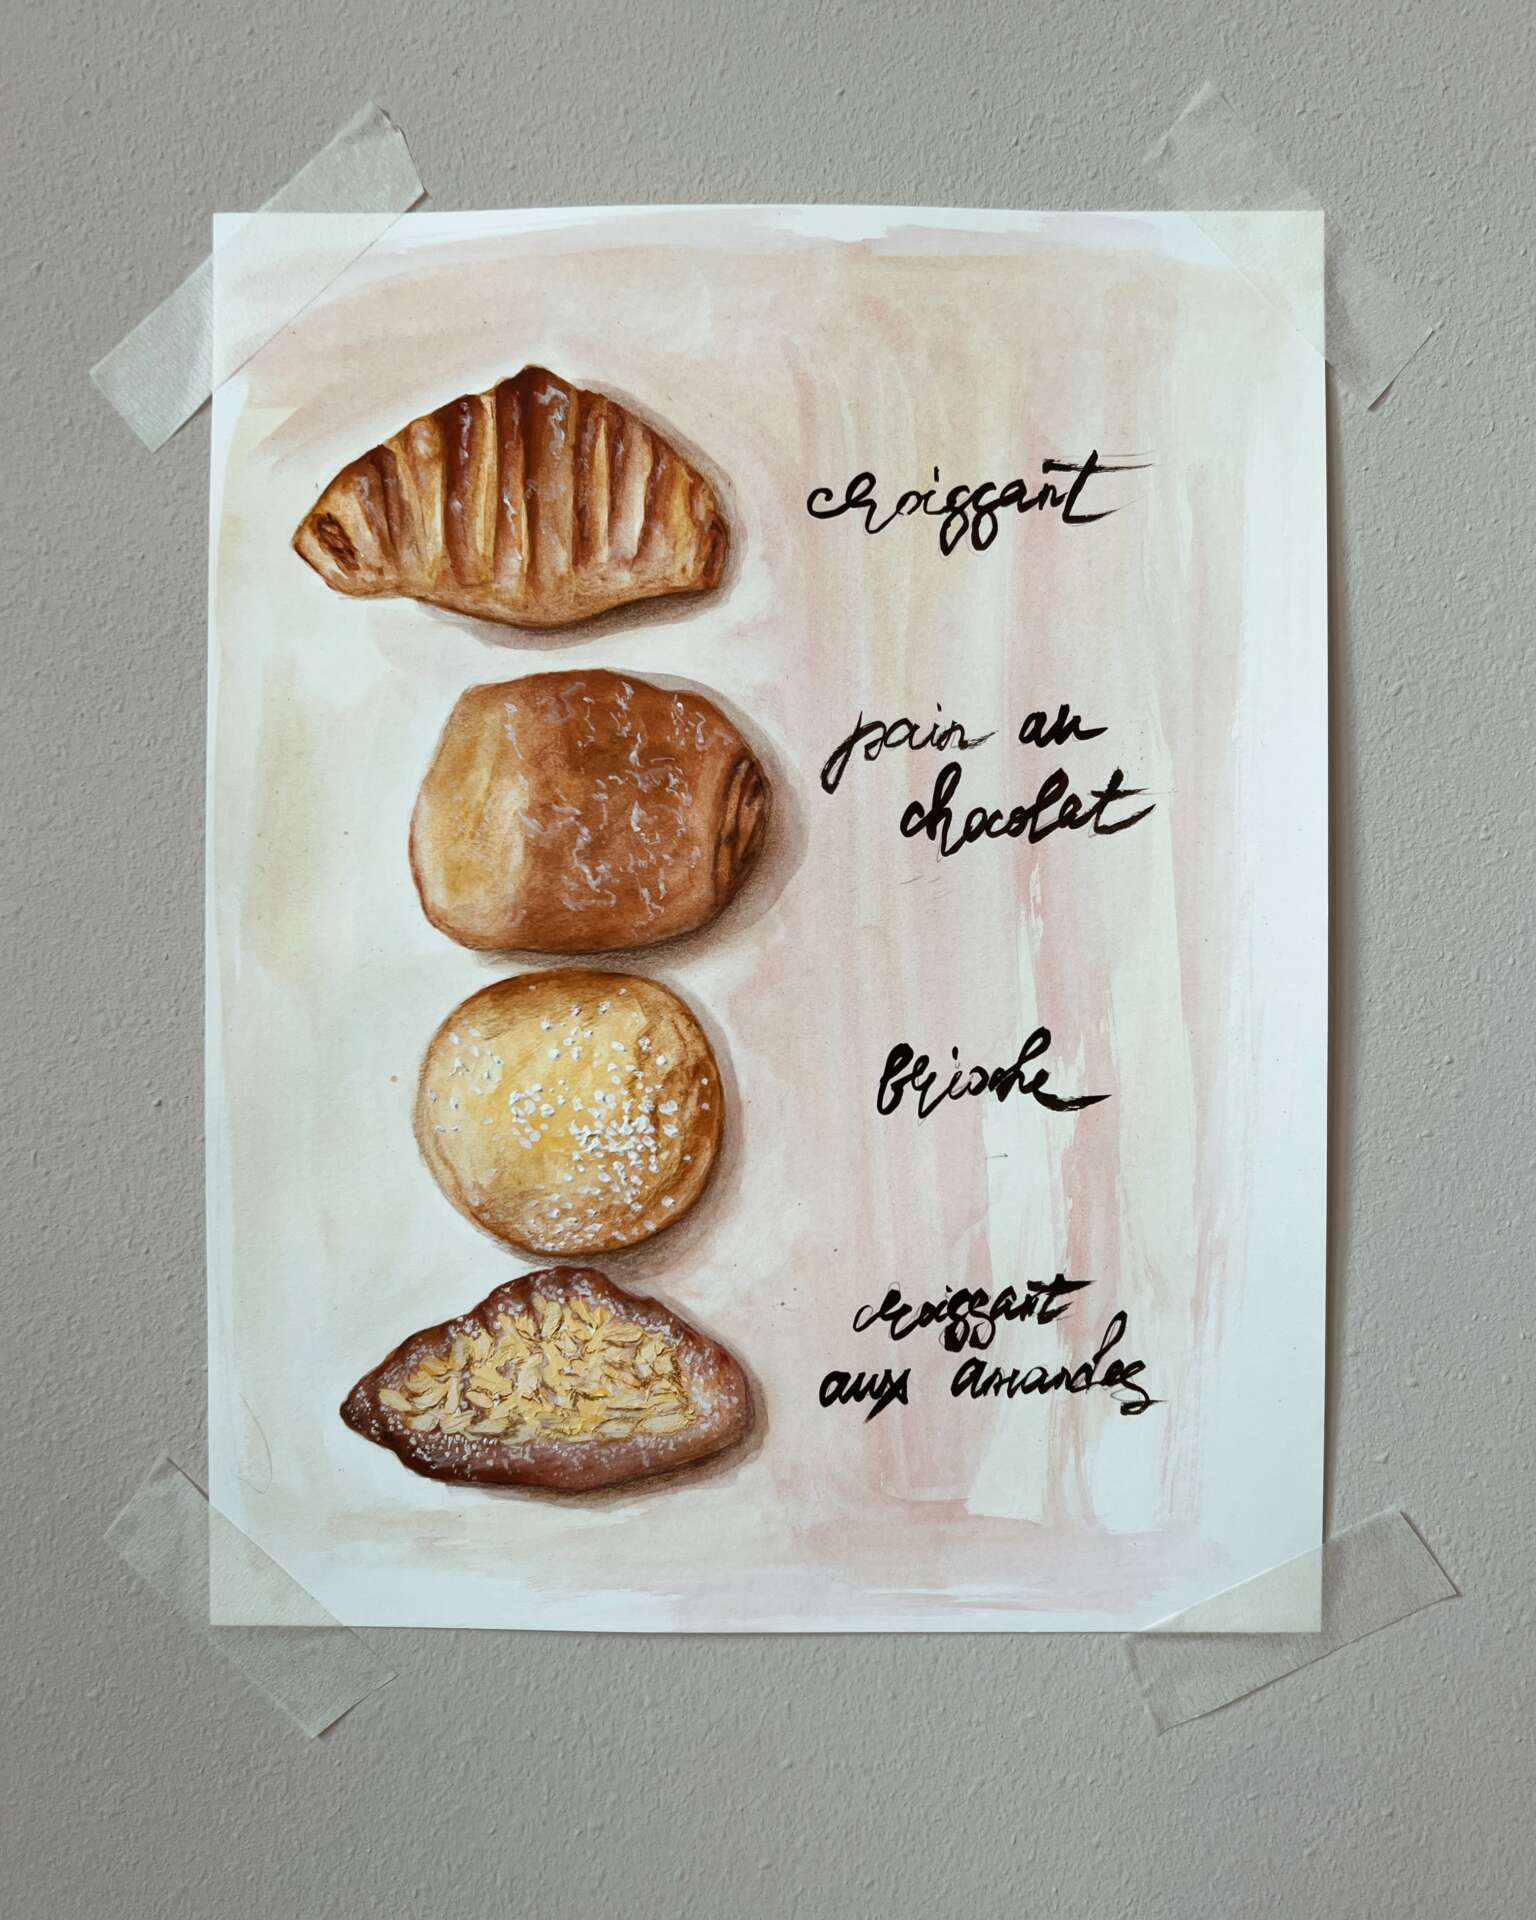 croissant
pain au
chocolat
brioche
croissant
aux amandes